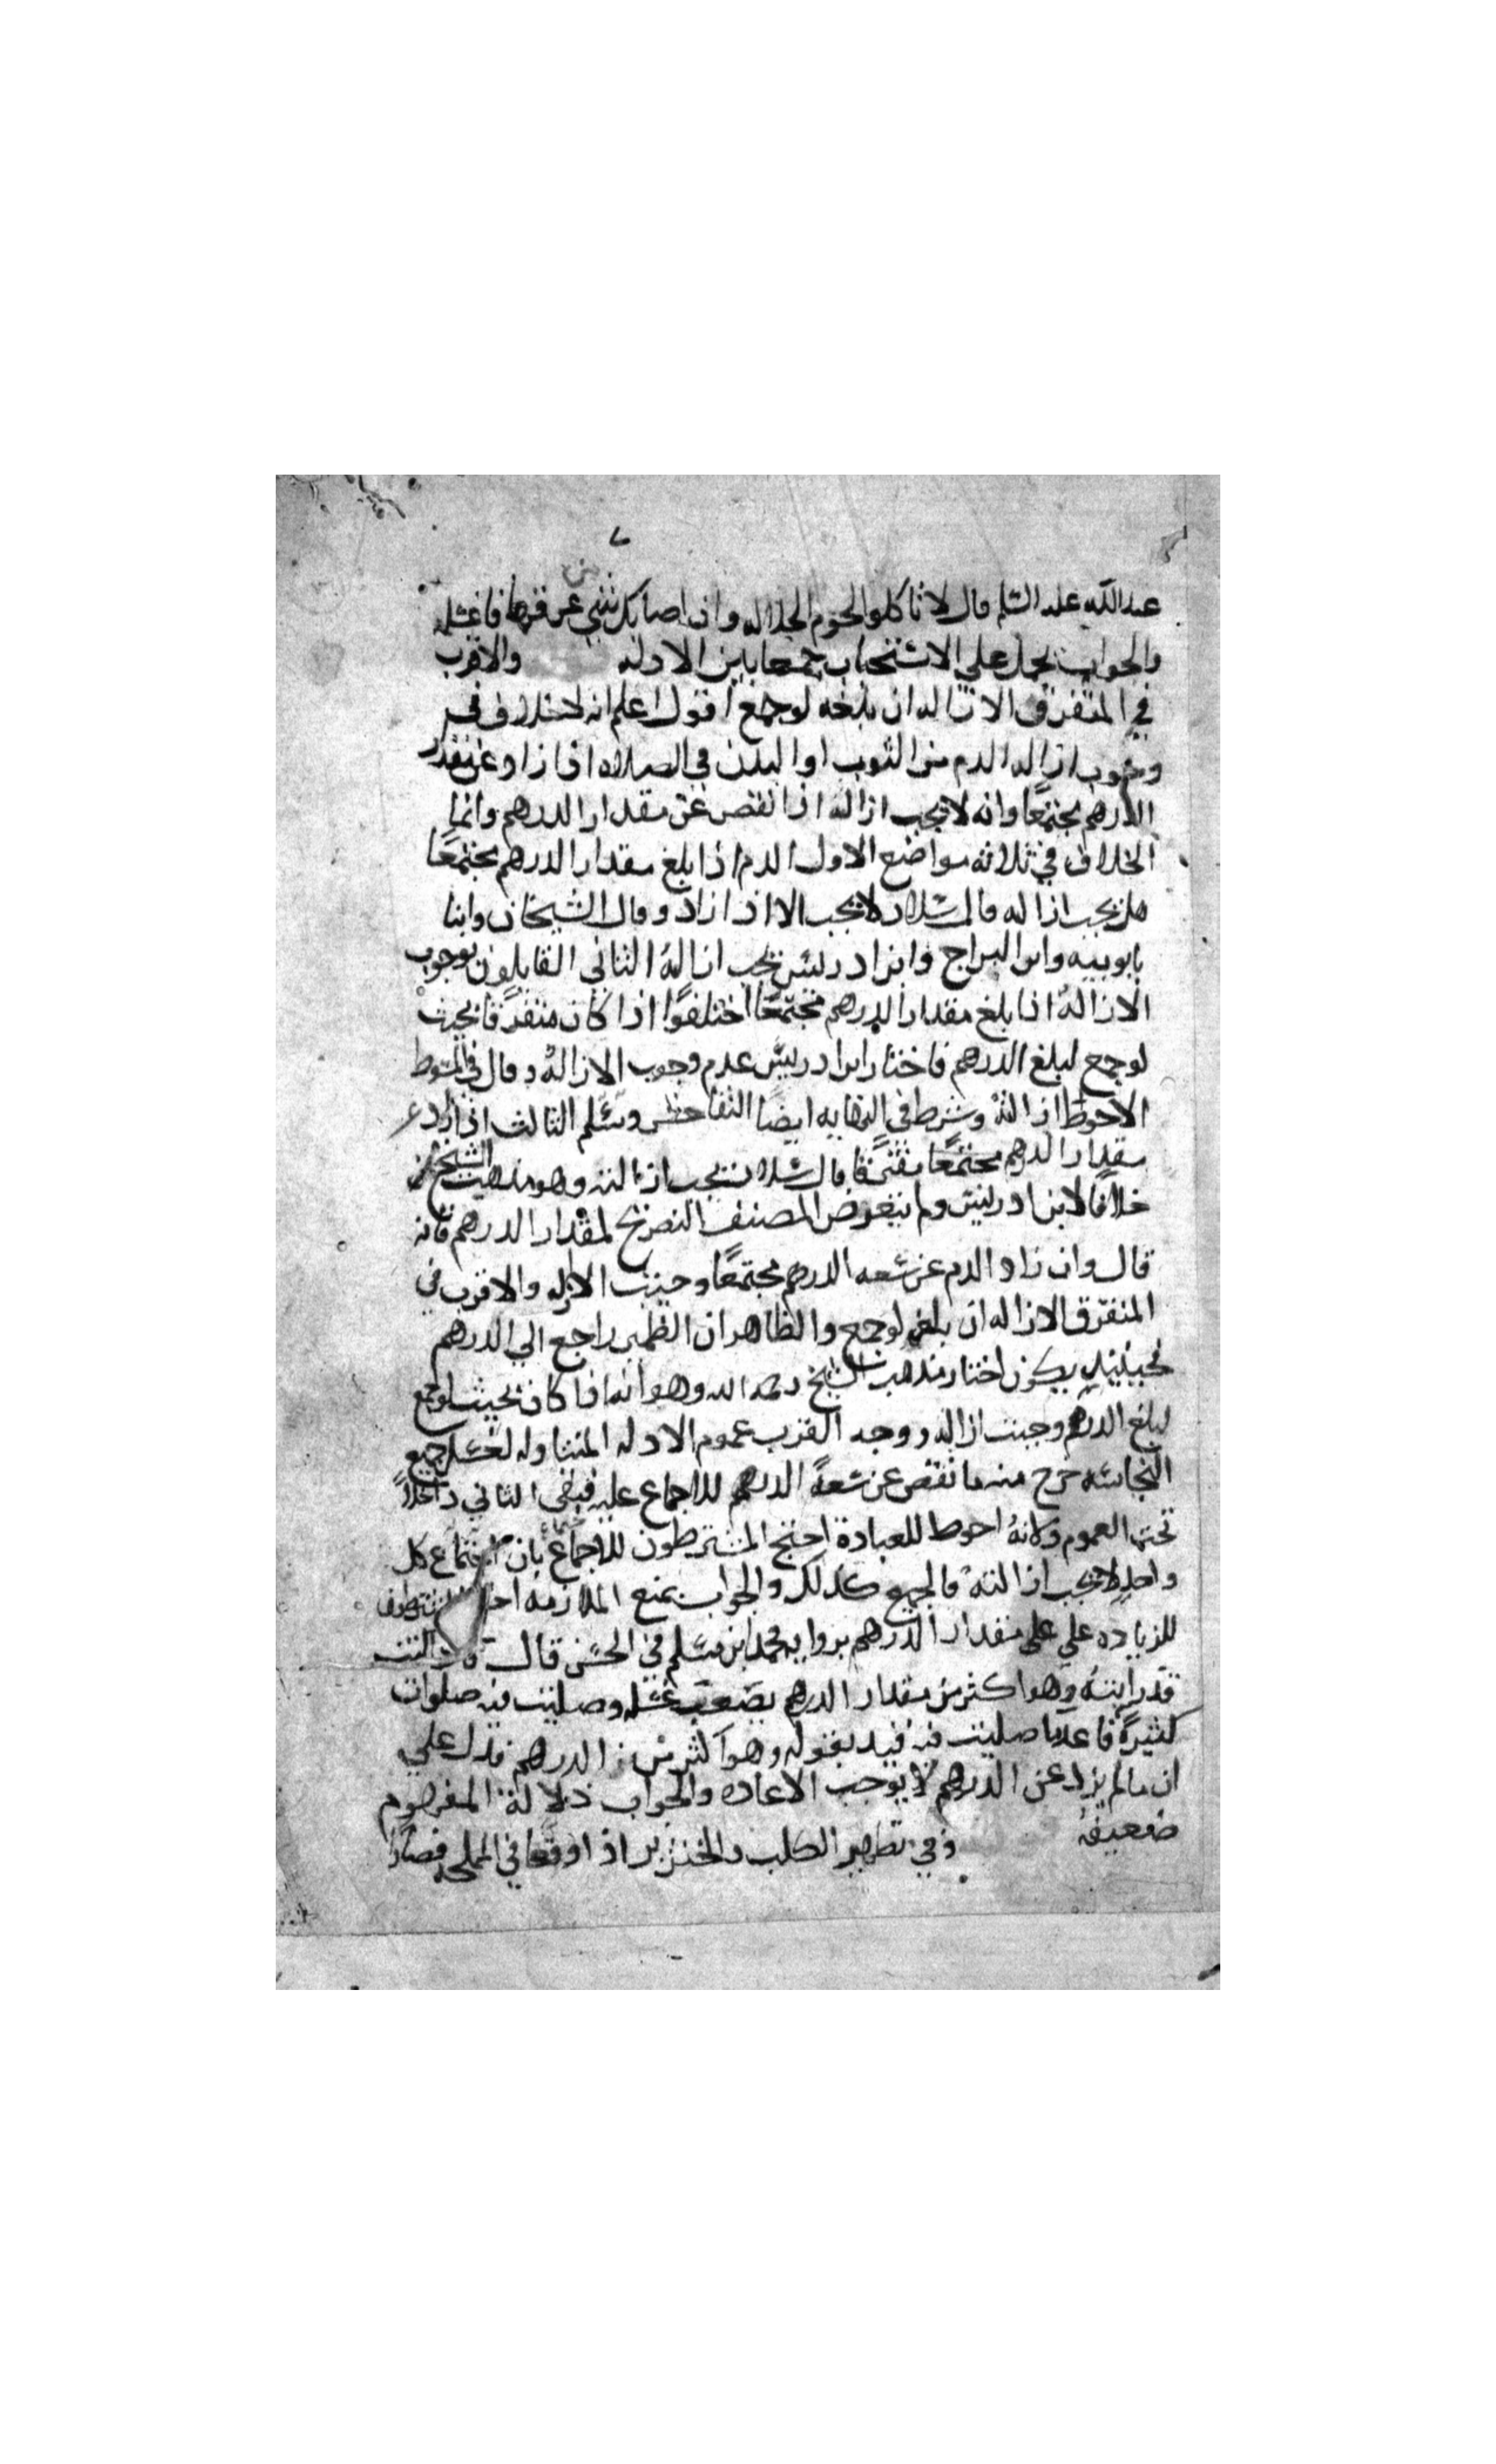 عبد الله عليه السلم قال لا تاكلوا لحوم الجلاله وان اصابك شي من عرقها فاغسله
والجواب يحمل علي الاستحباب جمعا بين الادله والاقرب
في المتفرق الازاله ان بلغه لوجمع اقول اعلم انه لا خلاف في
وجوب ازاله الدم من الثوب او البدن في الصلاه اذا زاد عن مقدار
الدرهم مجتمعًا وانه لا يجب ازاله اذا نقص عن مقدار الدرهم وانما
الخلاف في ثلاثه مواضع الاول الدم اذا بلغ مقدار الدرهم مجتمعًا
هل يجب ازاله قال سلار لا يجب الا اذا زاد وقال الشيخان وابنا
بابويه وابن البراج وابن ادريس يجب ازالهُ الثاني القايلون بوجوب
الازالهُ اذا بلغ مقدار الدرهم مجتمعًا اختلفوا اذا كان متفرقًا بحيث
لوجمع لبلغ الدرهم فاختار ابن ادريس عدم وجوب الازالهُ وقال في المبسوط
الاحوط ازالتهُ وشرط في النهايه ايضًا التفاحش وسلم الثالث اذا زاد عن
مقدار الدرهم مجتمعًا متفرقًا قال سلار يجب ازالته وهو مذهب الشيخ
خلافًا لابن ادريس ولم يتعرض المصنف التصريح لمقدار الدرهم فانه
قال وان زاد الدم عن سعه الدرهم مجتمعًا وجبت الازاله والاقرب في
المتفرق الازاله ان بلغه لوجمع والظاهر ان الضمير راجع الي الدرهم
فحينيذٍ يكون اختار مذهب الشيخ رحمه الله وهو انه اذا كان بحيث لوجمع
لبلغ الدرهم وجبت ازاله ووجه القرب عموم الادله المتناوله لغسل جميع
النجاسه خرج منه ما نقص عن سعهً الدرهم للاجماع عليه فبقي الثاني داخلاً
تحت العموم ولانهُ احوط للعبادة احتج المشترطون للاجماع بان كل
واحدٍ لا يجب ازالتهُ فالجميع كذلك والجواب بمنع الملازمه
للزياده علي علي مقدار الدرهم بروايه محمد ابن مسلم في الحسن قال
قد رايتهُ وهو اكثر من مقدار الدرهم غسله وصليت فيه صلوات
كثيرةً فاعد ما صليت فيه قيد بقوله وهو اكثر من الدرهم فدل علي
ان ما لم يزد عن الدرهم لا يوجب الاعاده والجواب دلالة المفهوم
ضعيفهُ وفي تطهير الكلب والخنزير اذا وقعا في المملحه فصارا